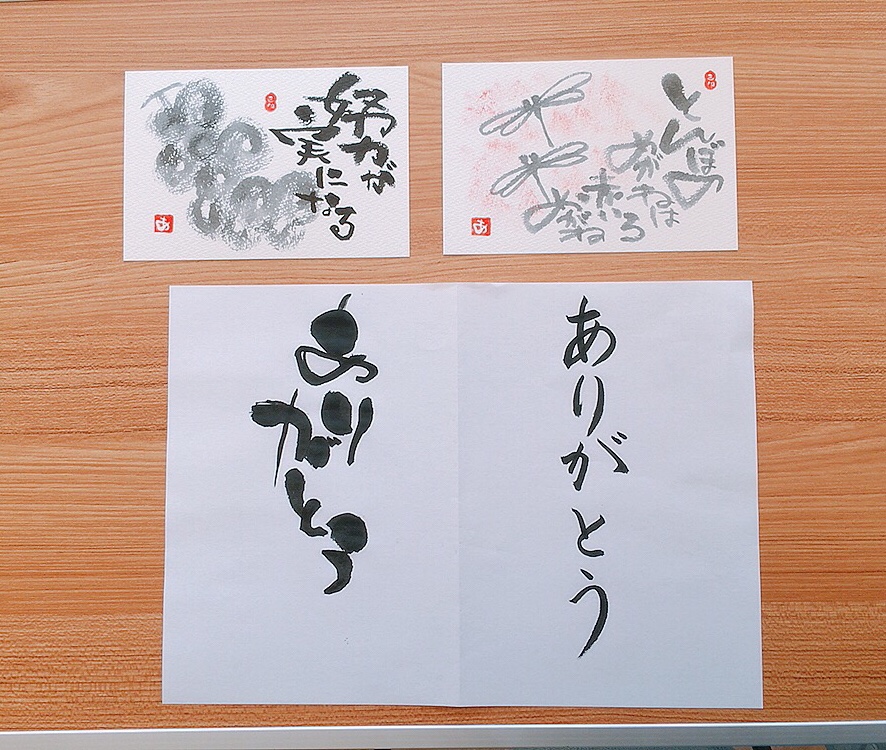 努力が
実に
なる
とんぼの
めがねは
赤いろ
めがね
あ
あ
ありがとう
ありがとう